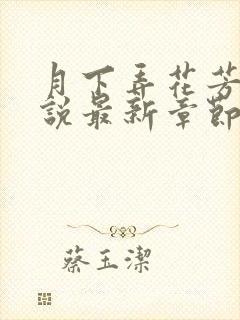 月下弄花芳
說最新章節
蔡玉潔